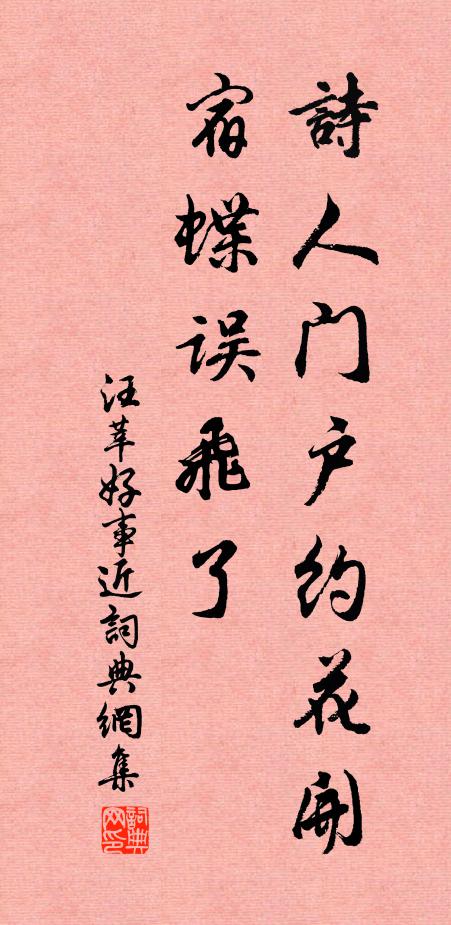 詩人門户約花開
宿蝶误飛了
汪莘好事近詞典網集
詞典网印